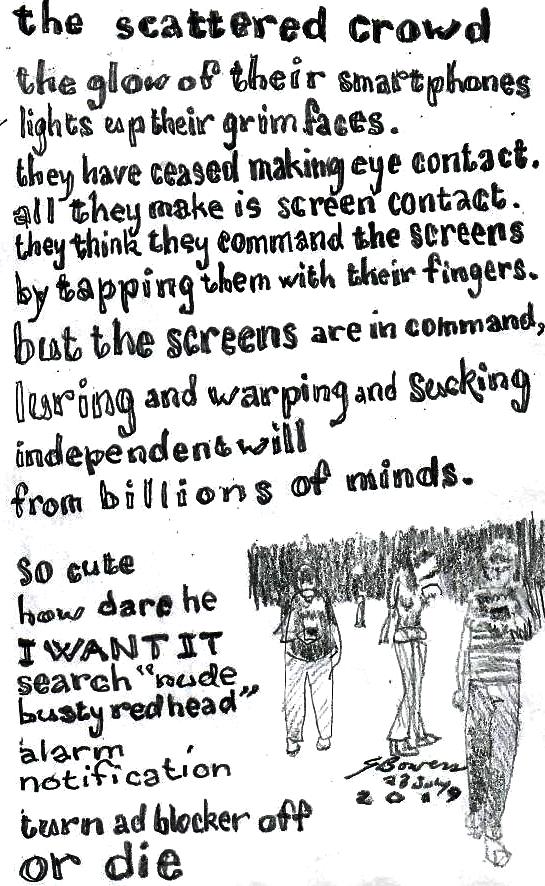 the scattered crowd
the glow of their smartphones
lights up their grim faces.
they have ceased making eye contact.
all they make is screen contact.
they think they command the screens
by tapping them with their fingers.
but the screens are in command,
luring and warping and sucking
independent will
from billions of minds.
so cute
how dare he
I WANT IT
search "nude
busty redhead"
alarm
notification
turn ad blocker off
or die
S Bowers
23 July
2019